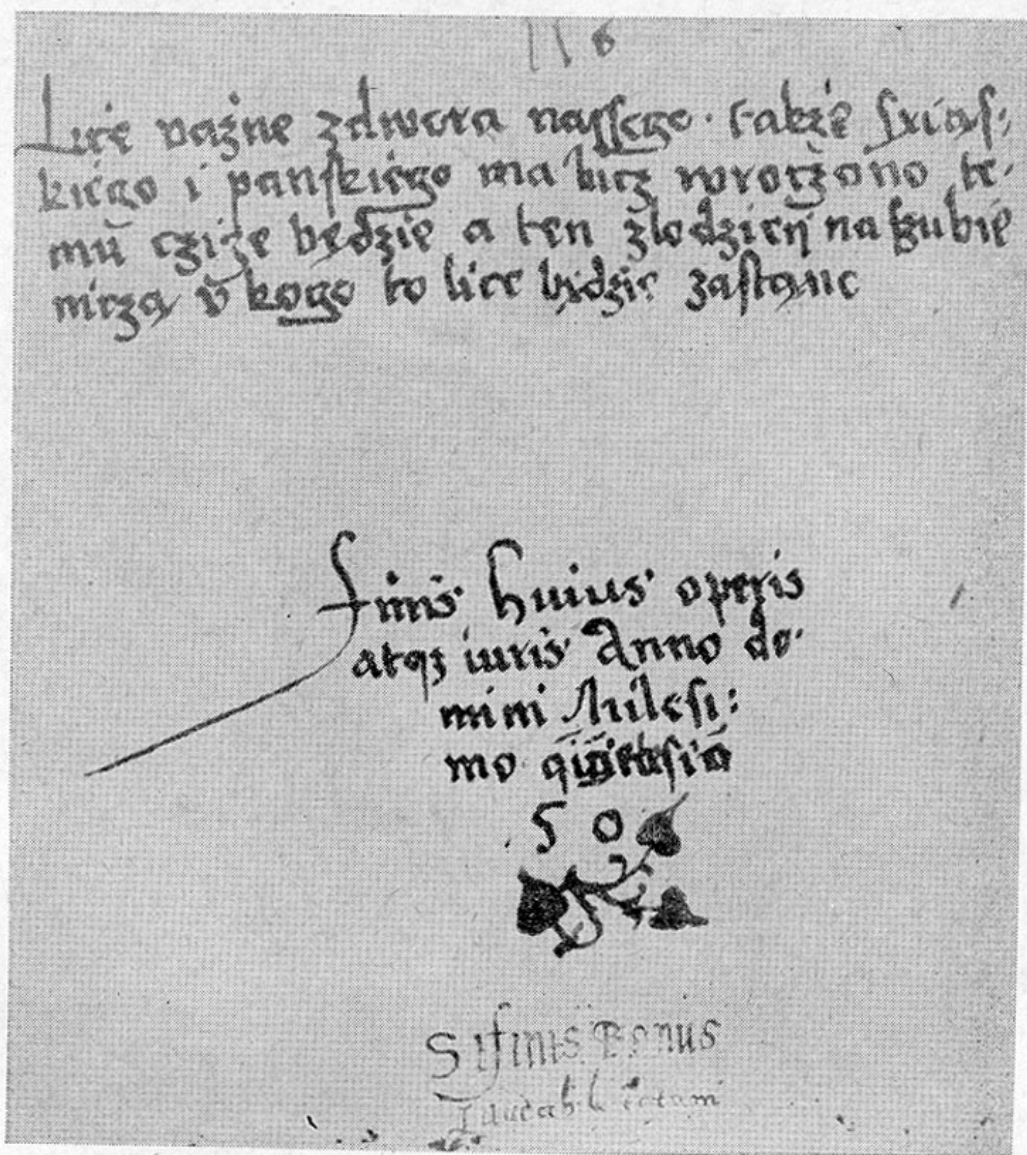 116
Licę ważnę zdwora nassego. takżę Xiąs:
kiego i panskiego ma bicz wroczono te-
mu czize będzie a ten złodzieÿ na szubie
niczą v kogo to lice bjdzie zastane
finis huius operis
atqꝫ iuris Anno do-
mini Milesi:
mo
50
Si finis Bonus
Laudabile totum